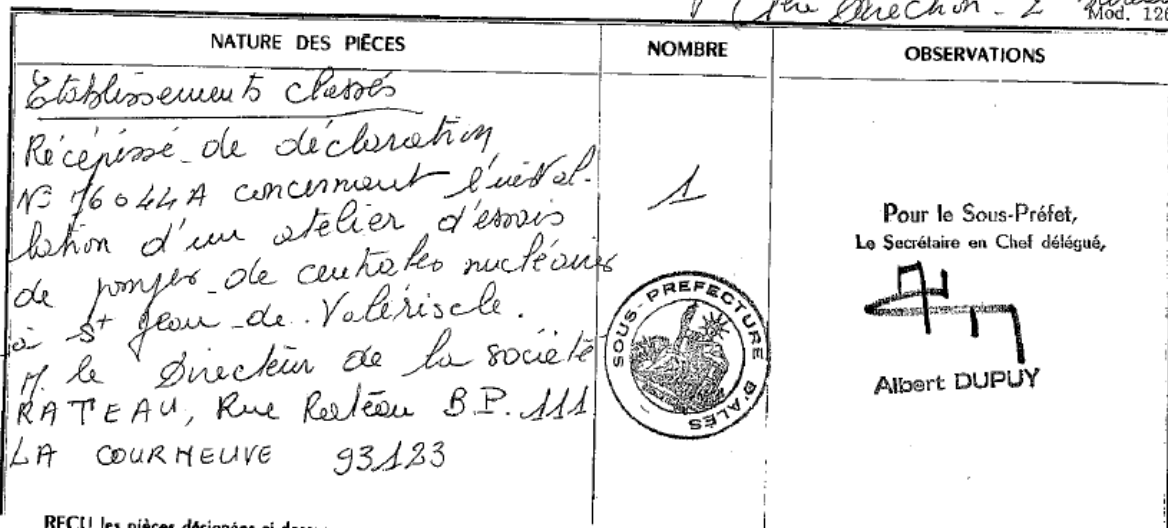 1ère Direction - 2
Mod. 120
NATURE DES PIÈCES
NOMBRE
OBSERVATIONS
Etablissements classés
Récépissé de déclaration
N° 76044A concernant l'instal-
lation d'un atelier d'essais
de pompes de centrales nucléaires
à St Jean de Valériscle.
M. le Directeur de la société
RATEAU, Rue Rateau B.P. 111
LA COURNEUVE 93123
1
SOUS-PREFECTURE D'ALÈS
Pour le Sous-Préfet,
Le Secrétaire en Chef délégué,
Albert DUPUY
REÇU les pièces désignées ci-dessus